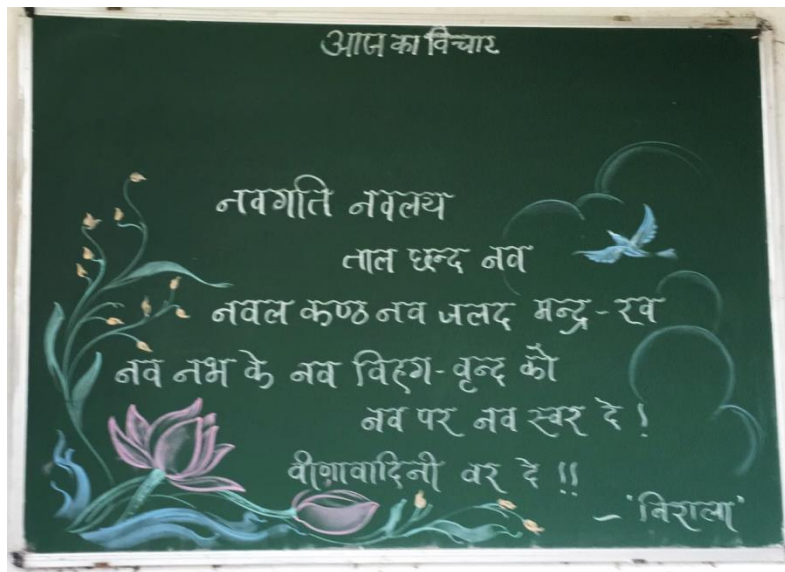 आज का विचार
नवगति नवलय
ताल छन्द नव
नवल कण्ठ नव जलद मन्द्र-रव
नव नभ के नव विहग-वृन्द को
नव पर नव स्वर दे!
वीणावादिनी वर दे!!
– 'निराला'